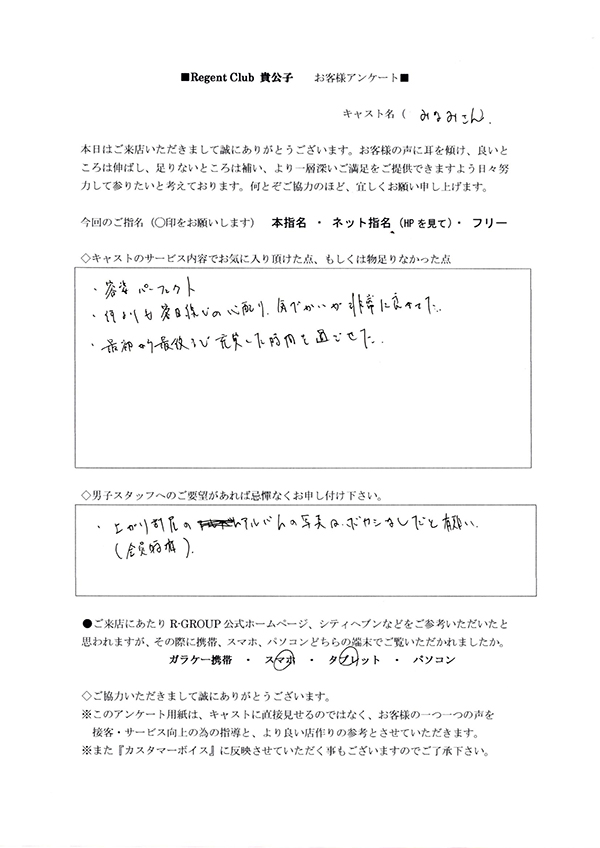 ■Regent Club 貴公子　お客様アンケート■
キャスト名（ みなみさん
本日はご来店いただきまして誠にありがとうございます。お客様の声に耳を傾け、良いと
ころは伸ばし、足りないところは補い、より一層深いご満足をご提供できますよう日々努
力して参りたいと考えております。何とぞご協力のほど、宜しくお願い申し上げます。
今回のご指名（〇印をお願いします）　本指名 ・ ネット指名（HPを見て）・ フリー
◇キャストのサービス内容でお気に入り頂けた点、もしくは物足りなかった点
・容姿パーフェクト
・何よりも客目線での心配り、気づかいが非常に良かった。
・最初から最後まで充実した時間を過ごせた。
◇男子スタッフへのご要望があれば忌憚なくお申し付け下さい。
・上がり部屋のアルバムの写真は、ボカシなしだと嬉しい
（会員特権）。
●ご来店にあたり R-GROUP 公式ホームページ、シティヘブンなどをご参考いただいたと
思われますが、その際に携帯、スマホ、パソコンどちらの端末でご覧いただかれましたか。
ガラケー携帯 ・ スマホ ・ タブレット ・ パソコン
◇ご協力いただきまして誠にありがとうございます。
※このアンケート用紙は、キャストに直接見せるのではなく、お客様の一つ一つの声を
接客・サービス向上の為の指導と、より良い店作りの参考とさせていただきます。
※また『カスタマーボイス』に反映させていただく事もございますのでご了承下さい。